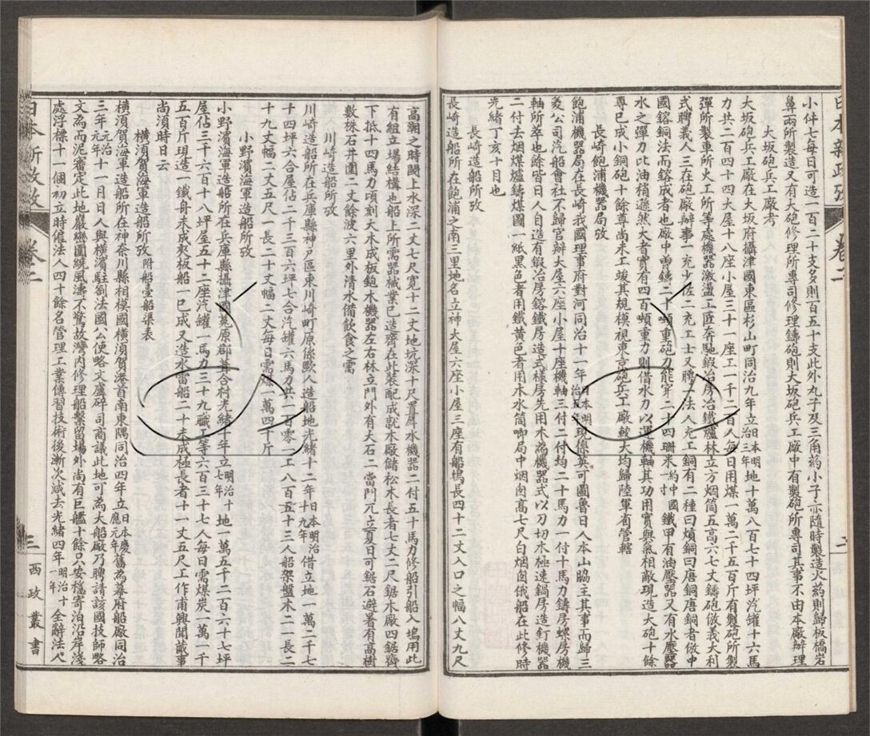 日本新政攷 卷二
小件七每日可造一百二十支多則百五十支此外丸子及三角葯小子亦隨時製造火葯則歸板橋岩
鼻兩所製造又有大砲修理所專司修理鑄砲則大坂砲兵工廠中有製砲所專司其事不由本廠辦理
大坂砲兵工廠考
大坂砲兵工廠在大坂府攝津國東區杉山町同治九年立日本明治三年地十萬八百七十四坪汽罐十六馬
力共二百四十四大屋十八座小屋三十一座工一千二百人每日用煤一萬二千五百斤有製砲所製
彈所製車所火工所等處機器激溫工匠奔馳鍛冶房冶鐵爐林立方烟筒五高六七丈鑄砲倣義大利
式聘義人三在砲廠辦事一充少佐二充工士又聘法人充工銅有二種曰熕銅曰唐銅唐銅者倣中
國鎔銅法而鎔成者也廠中曾鑄二十頓重砲力能穿二十四珊米鐵甲有油壓器又有水壓器
水之彈力比油稍遜然大者實有四百頓重力則借水力以運機輪其功用實與氣相敵現造大砲十餘
尊已成小銅砲十餘尊尚未工竣其規模視東京砲兵工廠較大均歸陸軍省管轄
長崎飽浦機器局攷
飽浦機器局在長崎我國理事府對河同治十一年現係英可圖魯日人本山脇主其事而歸三
菱公司汽船會社不歸官辦大屋六座小屋十座機軸三付二付均二十馬力一付十馬力鑄房螺房機
軸所萃也餘皆日人自造有鍛冶房鎔鐵房造式樣房先用木為機器式以刀切木極速鍋房造釘機器
二付去烟煤爐鑄煤圖一紙黑色者用鐵黃色者用木水筒唧局中烟囱高七尺白烟囱俄船在此修時
光緒丁亥十月也
長崎造船所攷
長崎造船所在飽浦之南三里地名立神大屋六座小屋三座有船塢長四十二丈入口之幅八丈九尺
高潮之時閘上水深二丈七尺寬十二丈地坑深十尺置昇水機器二付五十馬力修船引船入塢用此
有組立場結構也船上所需器械業已造齊在此裝配成就木廠儲松木長者七丈二尺鋸木廠四鋸齊
下抵十四馬力頃刻大木成板鎚木機器左右林立門外有大石二當門兀立夏日可鋸石避暑有高樹
數株石井圍二丈餘波六里外清水備飲食之需
川崎造船所攷
川崎造船所在兵庫縣神戶區東川崎町原係歐人造船地光緒十二年日本明治十九年借立地一萬二千七
十四坪六合屋佔二千三百六坪七合汽罐六馬力共一百零一工八百五十三人船架盤木二一長二
十九丈幅二丈五尺一長二十丈幅二丈每日需煤一萬四千斤
小野濱海軍造船所攷
小野濱海軍造船所在兵庫縣攝津國菟原郡葺合村光緒十年立明治十七年地一萬五千二百六十七坪
屋佔三千六百十八坪屋五十二座汽罐一馬力三十九職工等六百三十七人每日需煤炭一萬一千
五百斤現造一鐵舟未成夾板船一已成又造水雷船二十木成極長者十一丈五尺工作甫興聞蕆事
尚須時日云
橫須賀海軍造船所攷 附船臺船渠表
橫須賀海軍造船所在神奈川縣相模國橫須賀灣首南東隅同治四年立日本慶應元年舊為幕府船廠同治
三年元治元年十一月日人與橫濱駐劄法國公使略文盧碎司商議此地可為大船廠乃聘請該國技師略
文為而泥審定此地巖巒圍繞風濤不驚故灣內修理船繫留場外尚有巨艦十餘只安穩寄泊沿岸淺
處浮標十一個初立時僱法人四十餘名管理工業傳習技術後漸次減去光緒四年明治十一年全辭法人
日本新政攷 卷二 三 西政叢書